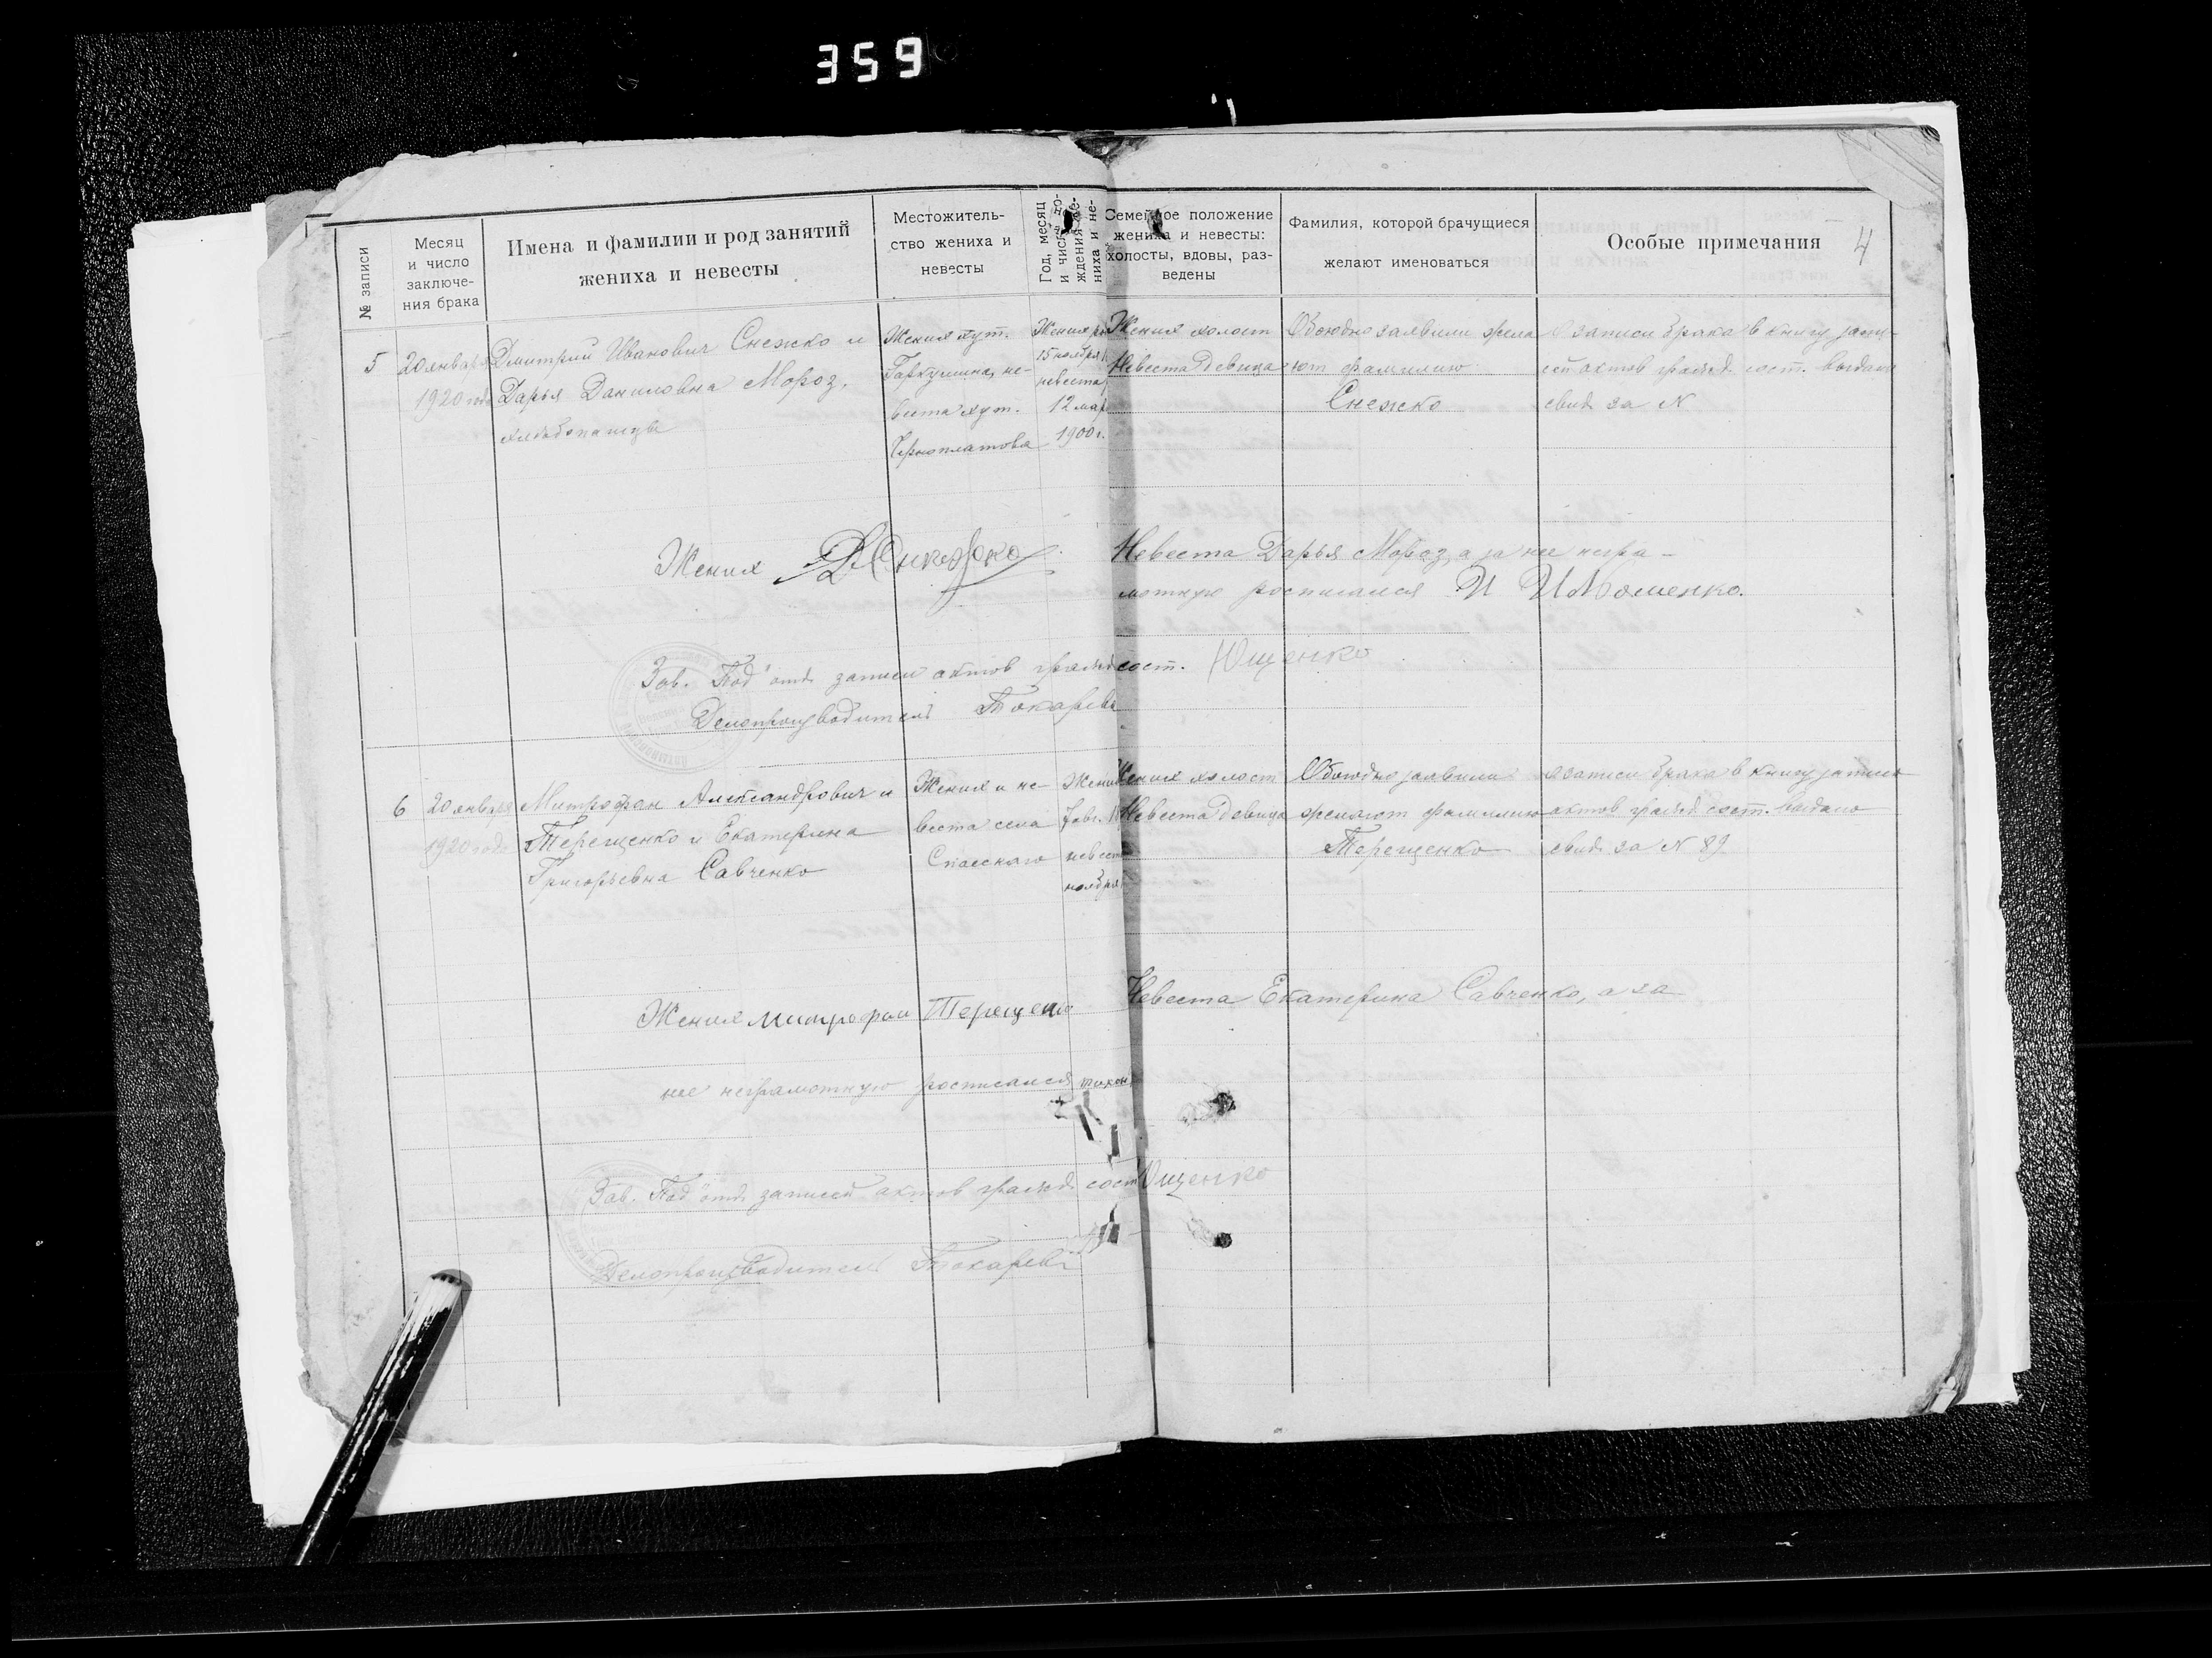 359
№ записи
Месяц
и число
заключе-
ния брака
Имена и фамилии и род занятий
жениха и невесты
Местожитель-
ство жениха и
невесты
Год, месяц
и число
ждения же-
ниха и не-
Семейное положение
жениха и невесты:
холосты, вдовы, раз-
ведены
Фамилия, которой брачущиеся
желают именоваться
Особые примечания
4
5
20 января
1920 года
Дмитрий Иванович Снежко и
Дарья Даниловна Мороз,
хлебопашцы
Жених хут.
Гаркушина, не-
веста хут.
Черноплатова
Жених
15 ноября
невеста
12 мар
1900 г.
Жених холост
Невеста девица
Обоюдно заявили жела
ют фамилию
Снежко
О записи брака в книгу запи-
сей актов гражд. сост. выдано
свид. за N
Жених Д Снежко
Невеста Дарья Мороз, а за нее негра-
мотную росписался И
Зав. Под'отд. записи актов гражд. сост. Ющенко
Делопроизводитель Токаревъ
6
20 января
1920 года
Митрофан Александрович и
Терещенко и Екатерина
Григорьевна Савченко
Жених и не-
веста села
Спасскаго
Жених
невеста
ноября
Жених холост
Невеста девица
Обоюдно заявили
желают фамилию
Терещенко
О записи брака в книгу записи
актов гражд. сост. выдано
свид. за N 89
Жених Митрофан Терещенко
Невеста Екатерина Савченко, а за
нее неграмотную росписался Тихон
Зав. Под'отд. записей актов гражд. сост Ющенко
Делопроизводитель Токаревъ